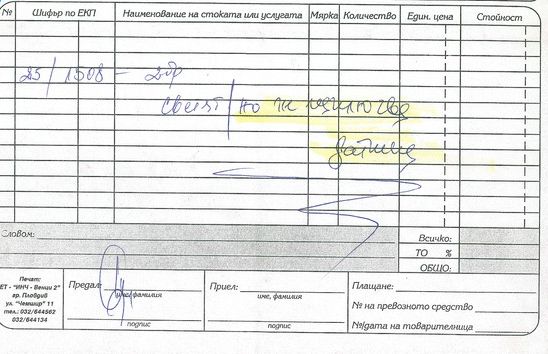 № Шифър по ЕКП Наименование на стоката или услугата Мярка Количество Един. цена Стойност
25/1508 — 2бр
Словом:
Всичко:
ТО %
ОБЩО:
Печат:
ЕТ - "ИНЧ - Венци 2"
гр. Пловдив
ул. "Чемшир" 11
тел.: 032/644562
032/644134
Предал:
име, фамилия
подпис
Приел:
име, фамилия
подпис
Плащане:
№ на превозното средство
№/дата на товарителница